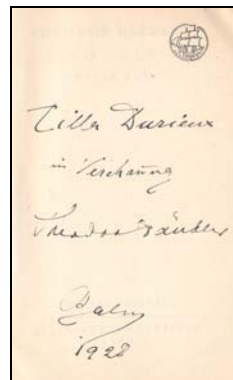 Tilla Durieux
in Verehrung
Theodor Däubler
1928